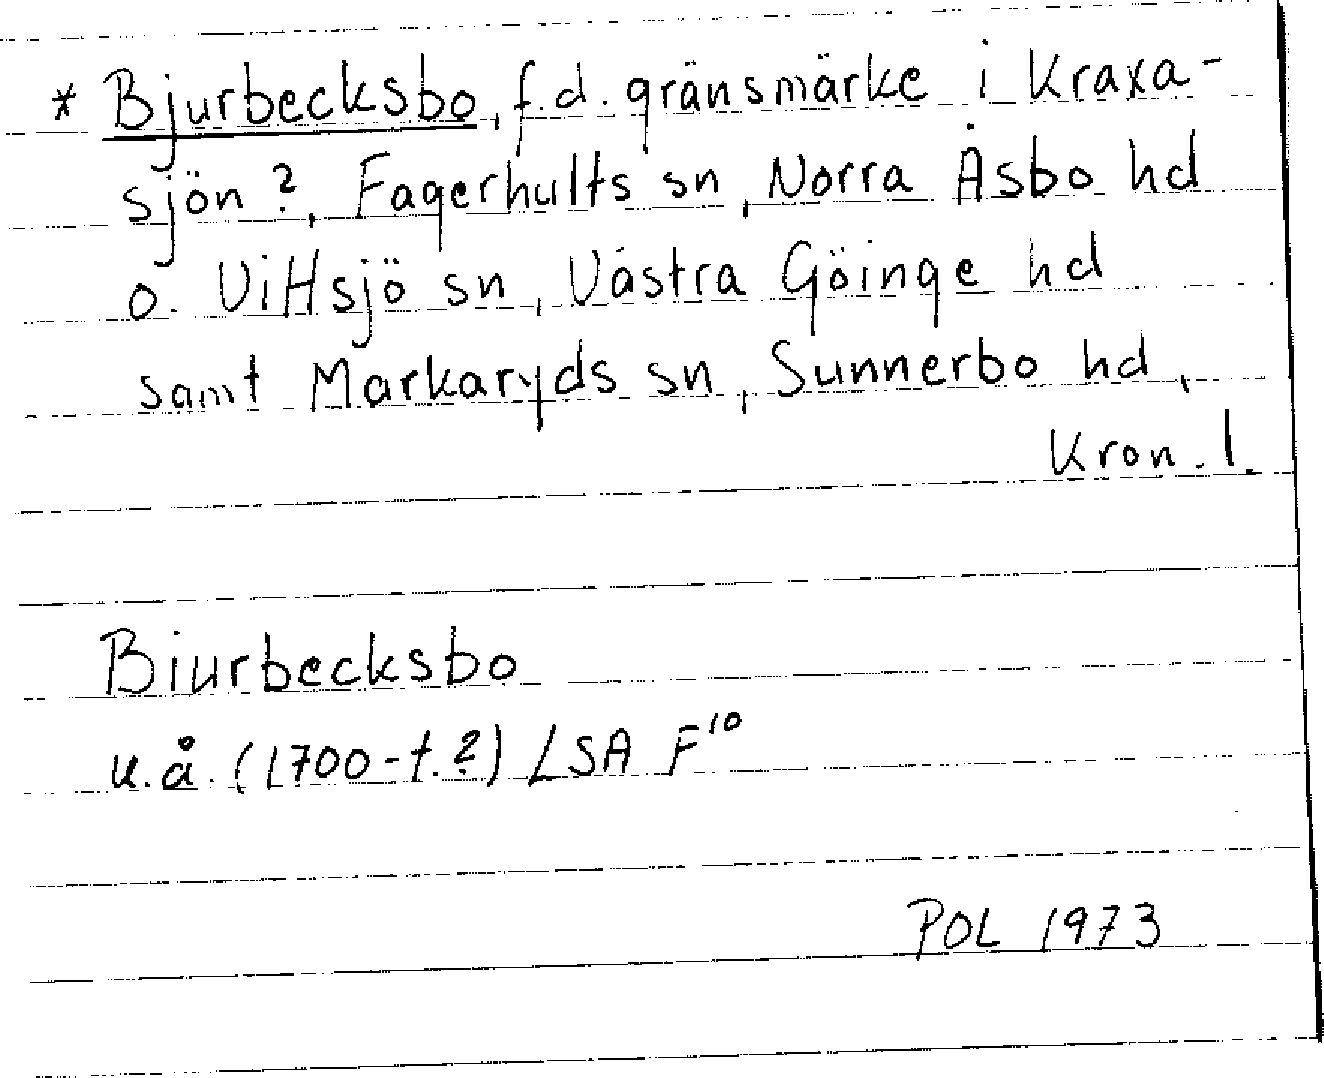 * Bjurbecksbo, f.d. gränsmärke i Kraxa-
sjön ?, Fagerhults sn, Norra Åsbo hd
o. Vittsjö sn, Västra Göinge hd
samt Markaryds sn, Sunnerbo hd,
Kron. l.
Biurbecksbo
u.å. (1700-t.?) LSA F¹⁰
POL 1973